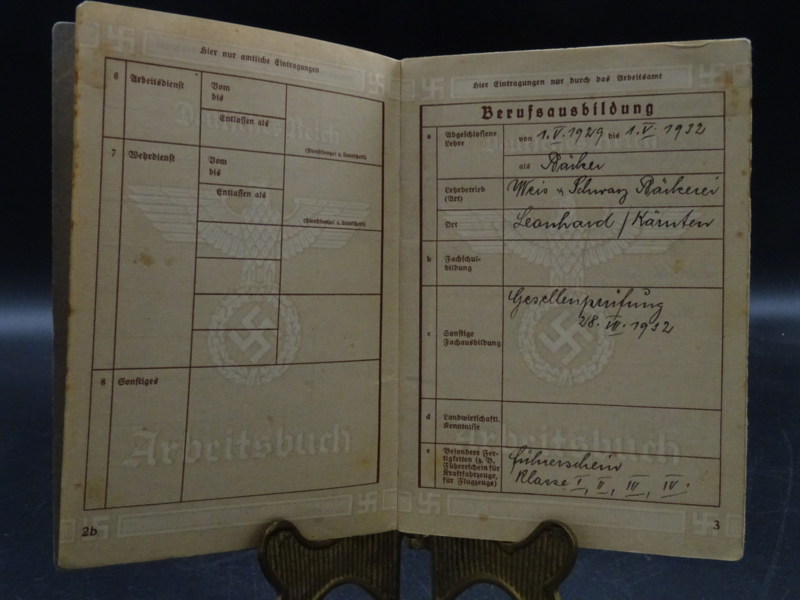 Hier nur amtliche Eintragungen
6 Arbeitsdienst
Vom
bis
Entlassen als
(Dienststempel u. Unterschrift)
7 Wehrdienst
Vom
bis
Entlassen als
(Dienststempel u. Unterschrift)
8 Sonstiges
Deutsches Reich
Arbeitsbuch
2b
Hier Eintragungen nur durch das Arbeitsamt
Berufsausbildung
a Abgeschlossene
Lehre
von 1.V.1929 bis 1.V.1932
als Bäcker
Lehrbetrieb
(Art)
Weis u Schwarz Bäckerei
Ort
Leonhard / Kärnten
b Fachschul-
bildung
c Sonstige
Fachausbildung
Gesellenprüfung
28. IV. 1932
d Landwirtschaftl.
Kenntnisse
e Besondere Fer-
tigkeiten (z. B.
Führerschein für
Kraftfahrzeuge,
für Flugzeuge)
Führerschein
Klasse I, II, III, IV.
Arbeitsbuch
3